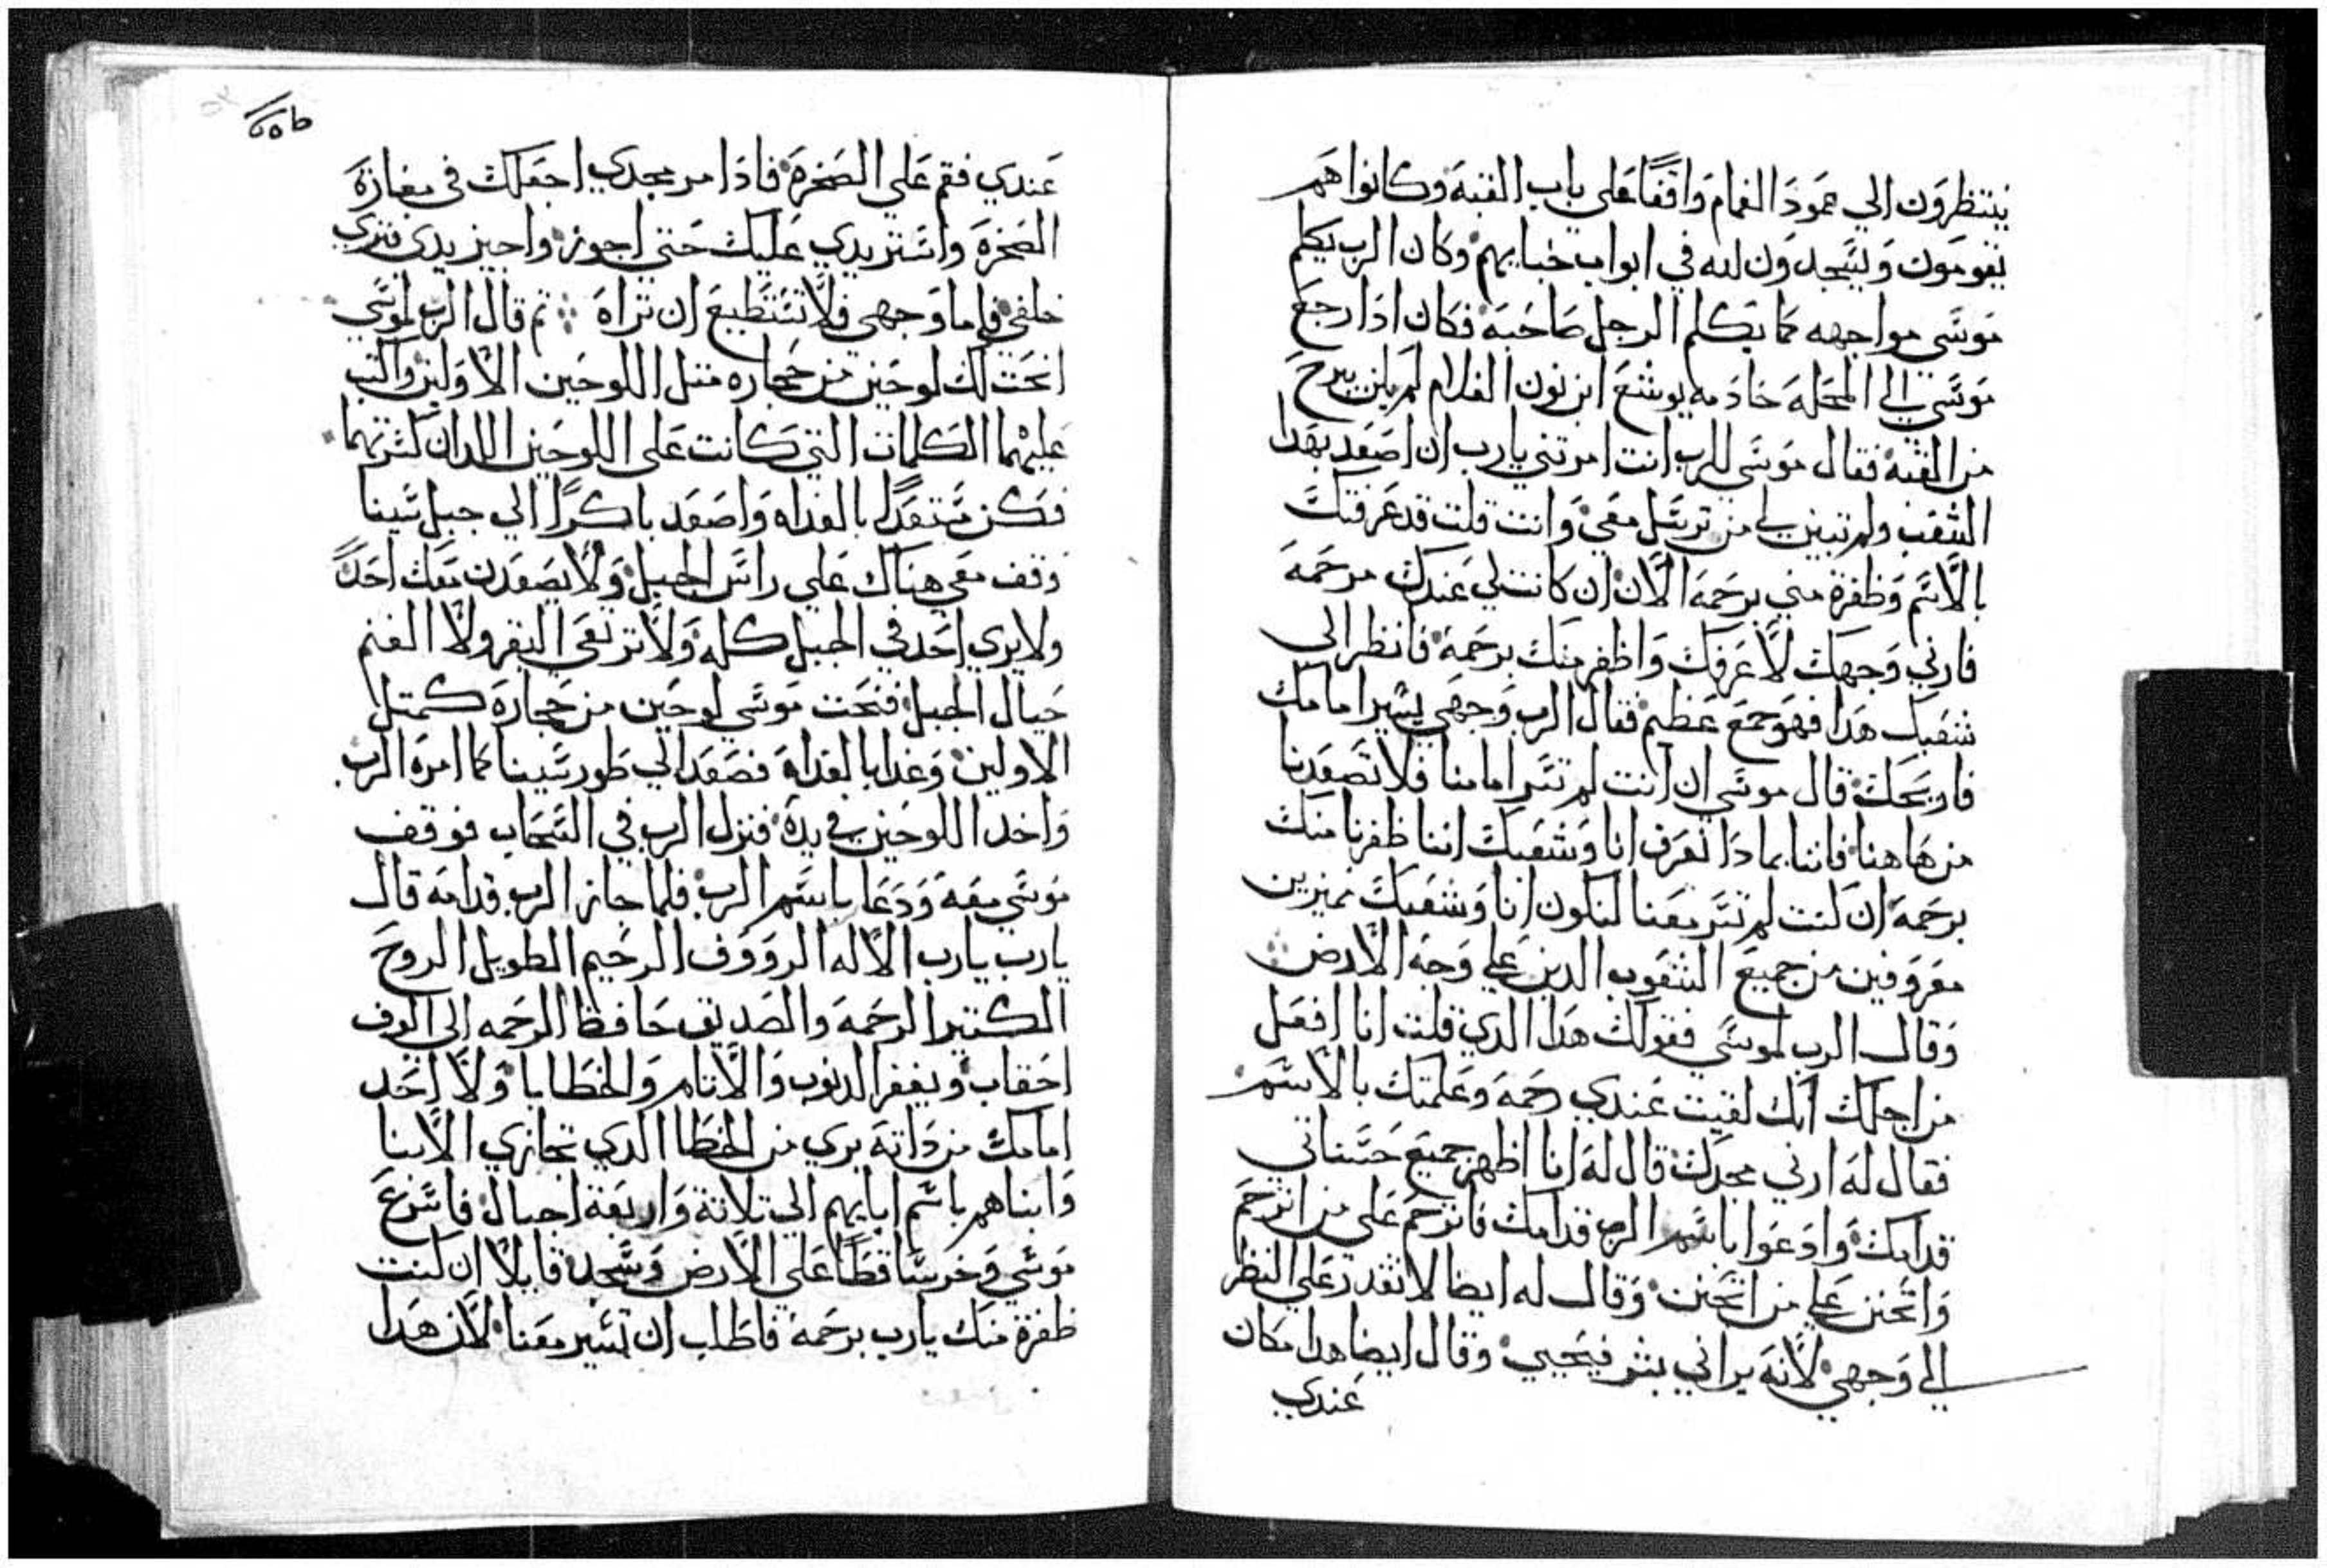 ينتظرون الي عمود الغمام واقفًا علي باب القبة وكانوا هم
يقومون ويسجدون لله في ابواب خبايهم وكان الرب يكلم
موسي مواجهه كما يكلم الرجل صاحبه فكان ادا رجع
موسي الي المحله خادمه يوشع ابن نون الغلام لم يكن يبرح
من القبه فقال موسي للرب انت امرتني يارب ان اصعد بهدا
الشعب ولم تبين لي من ترسل معي وانت قلت قد عرفتك
بالاسم وظفرة مني برحمه الان ان كانت لي عندك مرحمه
فارني وجهك لاعرفك واظفر منك برحمة فانظر الي
شعبك هدا فهو جمع عظيم فقال الرب وجهي يسير امامك
فاريحك قال موسي ان انت لم تسر امامنا فلا تصعدنا
من هاهنا فاننا بمادا نعرف انا وشعبك اننا ظفرنا منك
برحمه ان كنت لم تسر معنا لنكون انا وشعبك مميزين
معروفين من جميع الشعوب الدين علي وجه الارض
وقال الرب لموسي فقولك هدا الدي قلت انا افعل
من اجلك انك لقيت عندي رحمه وعلمتك بالاسم
فقال له ارني مجدك قال له انا اظهر جميع حسناتي
قدامك وادعوا باسم الرب قدامك فاترحم علي من اترحم
واتحنن علي من اتحنن وقال له ايضا لا تقدر علي النظر
الي وجهي لانه يراني بشر فيحيي وقال ايضا هدا مكان
عندي
عندي فقم علي الصخرة فادا مر مجدي اجعلك في مغازة
الصخرة واستر يدي عليك حتي اجوز واجيز يدي فتري
خلفي فاما وجهي فلا تستطيع ان تراه ثم قال الرب لموسي
انحت لك لوحين من حجاره متل اللوحين الاولين واكتب
عليهما الكلمات التي كانت علي اللوحين اللدان كسرتهما
فكن مستعدًا بالغداه واصعد باكرًا الي جبل سينا
وقف معي هناك علي راس الجبل ولا يصعدن معك احدً
ولا يري احد في الجبل كله ولا ترتعي البقر ولا الغنم
حيال الجبل فنحت موسي لوحين من حجارة كمتل
الاولين وغدا بالغداه فصعد الي طور سينا كما امره الرب
واخد اللوحين في يده فنزل الرب في السحاب فوقف
موسي معه ودعا باسم الرب فلما جاز الرب قدامه قال
يارب يارب الاله الرووف الرحيم الطويل الروح
الكتير الرحمه والصديق حافظ الرحمه الي الوف
احقاب ويغفر الدنوب والاتام والخطايا ولا احد
امامك من داته بري من الخطا الدي تجازي الابنا
وابناهم باسم ابايهم الي تلاتة واربعة اجيال فاسرع
موسي وخر ساقطًا علي الارض وسجد قايلا ان كنت
ظفرة منك يارب برحمة فاطلب ان تسير معنا لان هدا